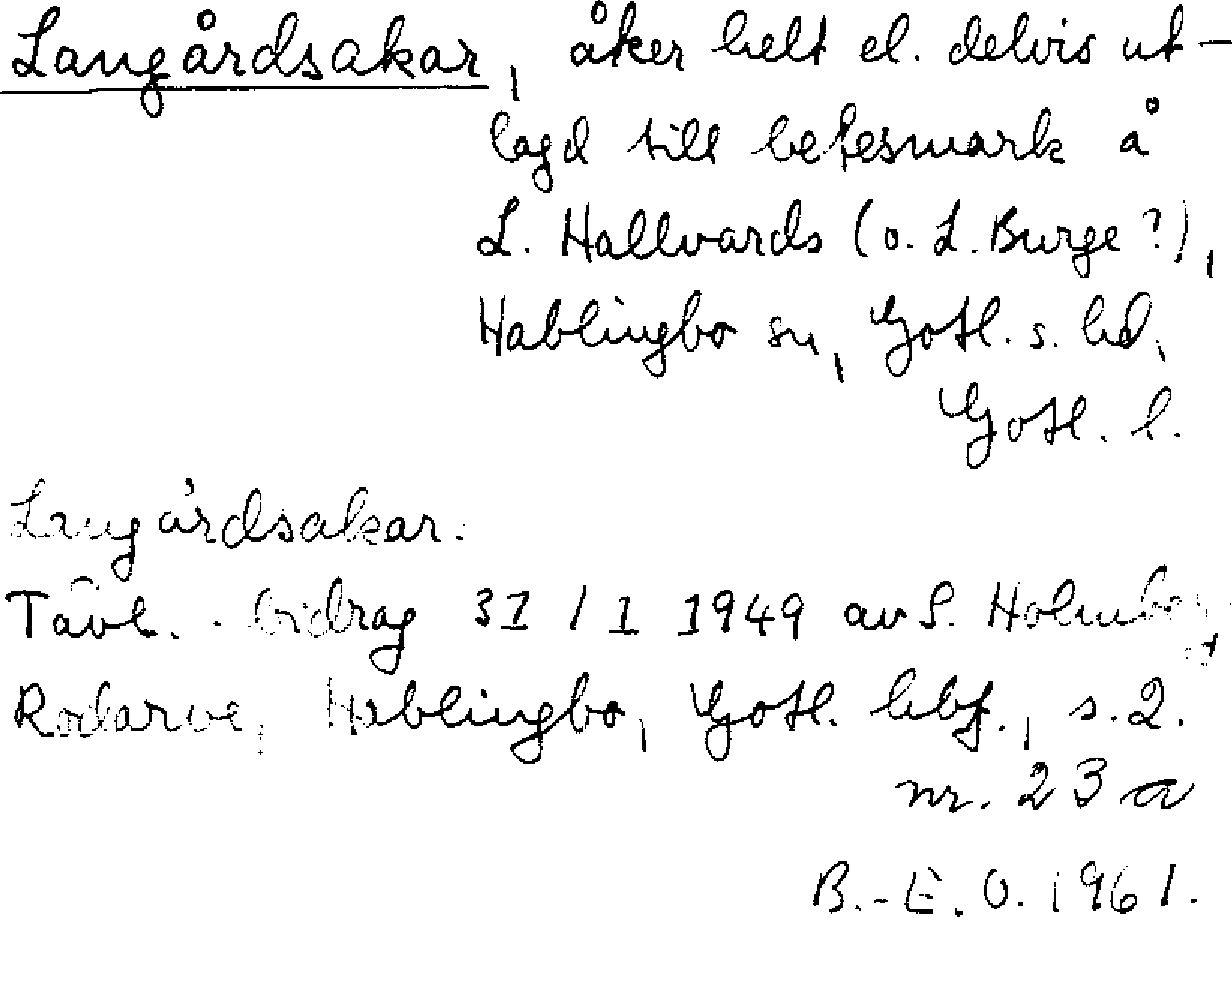 Langårdsakar, åker helt el. delvis ut-
lagd till betesmark å
L. Hallvards (o. L. Burge?),
Hablingbo sn, Gotl. s. hd,
Gotl. l.
Langårdsakar.
Tävl. bidrag 31/1 1949 av S. Holmberg
Rodarve, Hablingbo, Gotl. hbf., s. 2.
nr. 23 a
B.-E. O. 1961.